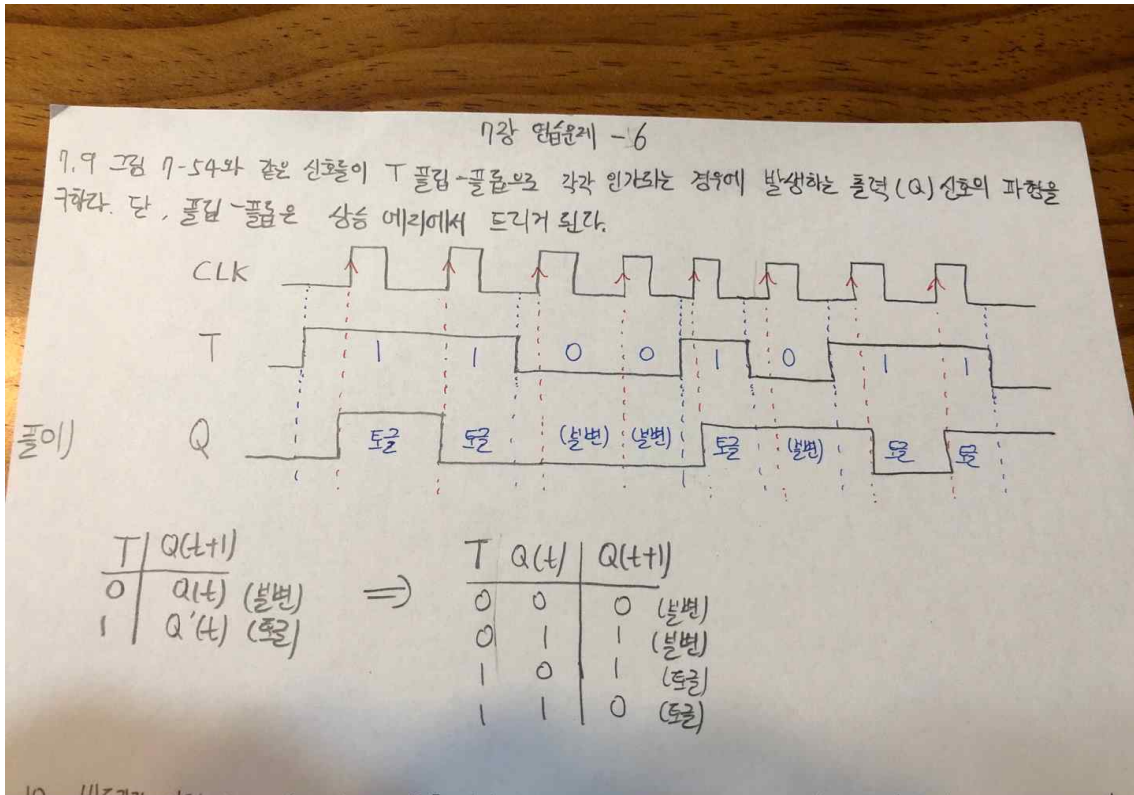 7장 연습문제 - 6
7.9 그림 7-54와 같은 신호들이 T 플립-플롭으로 각각 인가되는 경우에 발생하는 출력(Q) 신호의 파형을
구하라. 단, 플립-플롭은 상승 에지에서 트리거 된다.
CLK
T 1 1 0 0 1 0 1 1
풀이) Q 토글 토글 (불변) (불변) 토글 (불변) 토글 토글
T Q(t+1)
0 Q(t) (불변)
1 Q'(t) (토글)
⇒
T Q(t) Q(t+1)
0 0 0 (불변)
0 1 1 (불변)
1 0 1 (토글)
1 1 0 (토글)